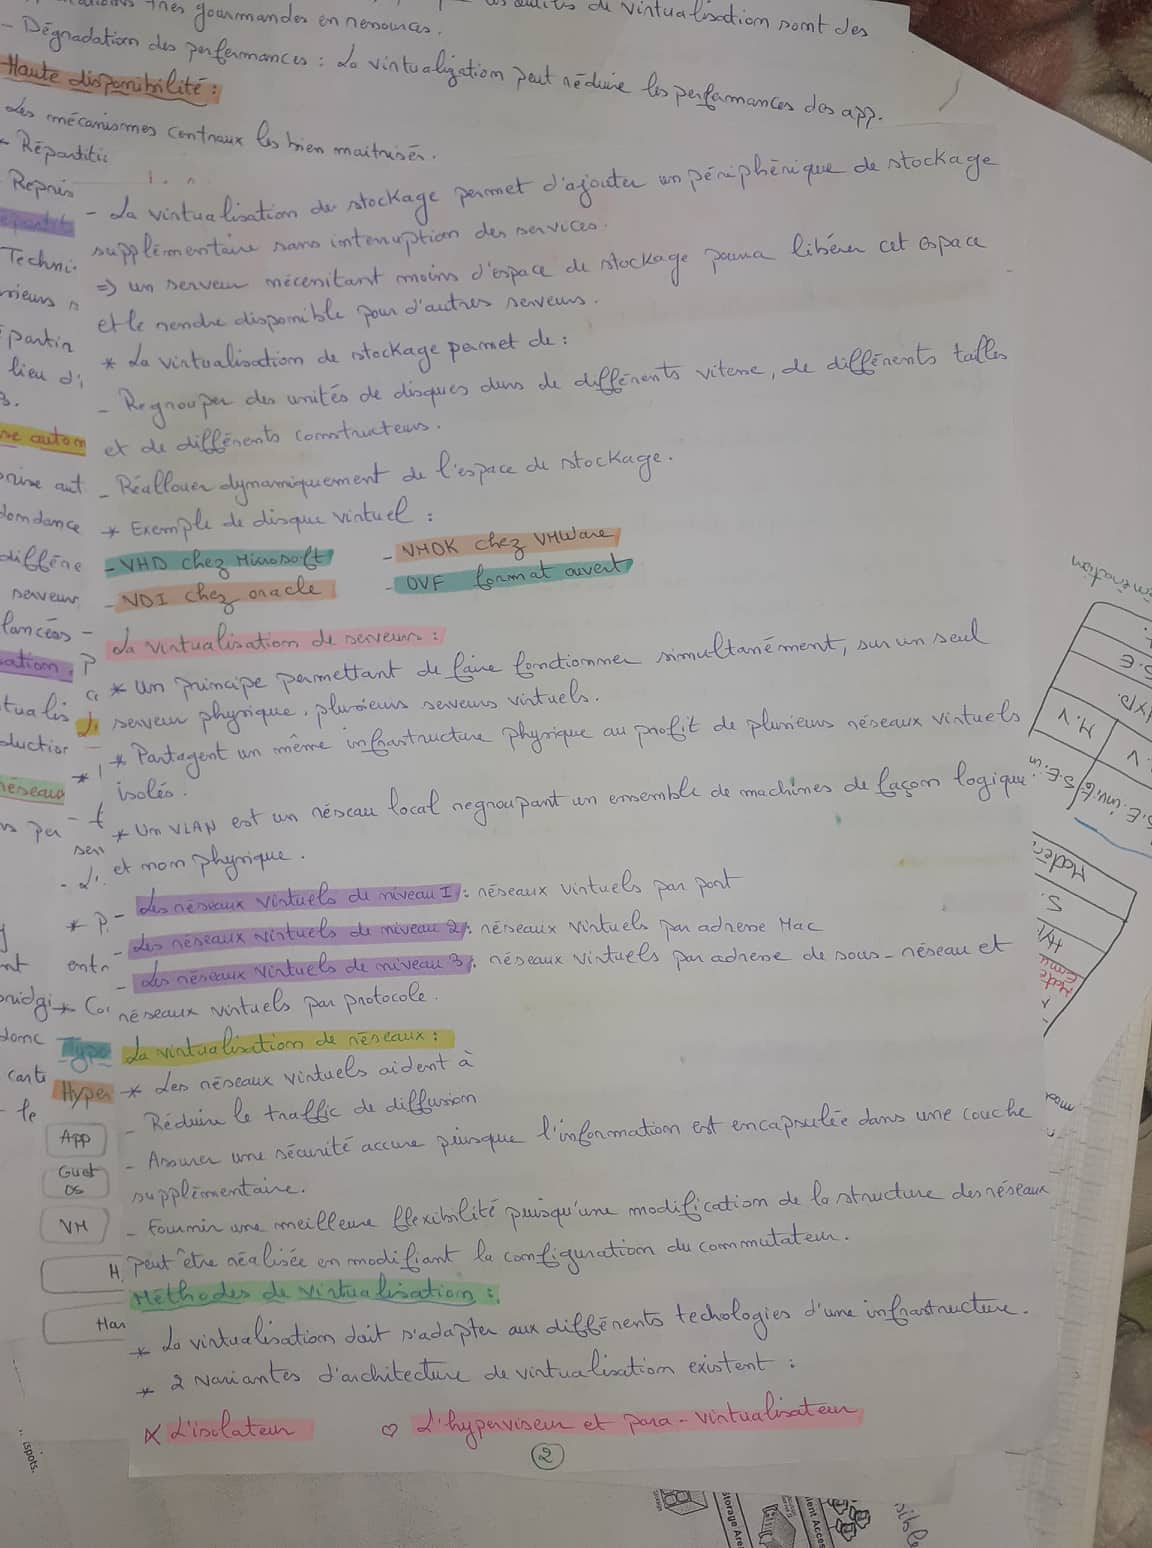 très gourmandes en ressources.
de virtualisation sont des
- Dégradation des performances : La virtualization peut réduire les performances des app.
Haute disponibilité :
Les mécanismes centraux les bien maitrisés.
- Répartitio
Repris
Techni
rieurs
partin
lieu d'
se autom
prise aut
dondance
différe
serveurs
lancées
ation.
tualis
duction
réseaux
- La virtualisation de stockage permet d'ajouter un périphérique de stockage
supplémentaire sans interruption des services.
=> un serveur nécessitant moins d'espace de stockage pourra libérer cet espace
et le rendre disponible pour d'autres serveurs.
* La virtualisation de stockage permet de :
- Regrouper des unités de disques durs de différents vitesse, de différents tailles
et de différents constructeurs.
- Réallouer dynamiquement de l'espace de stockage.
* Exemple de disque virtuel :
- VHD chez Microsoft - VMDK chez VMWare
- VDI chez oracle - OVF format ouvert
La virtualisation de serveurs :
* Un principe permettant de faire fonctionner simultanément, sur un seul
serveur physique, plusieurs serveurs virtuels.
* Partagent un même infrastructure physique au profit de plusieurs réseaux virtuels
isolés.
* Un VLAN est un réseau local regroupant un ensemble de machines de façon logique
et non physique.
- Les réseaux virtuels de niveau 1 : réseaux virtuels par port
- Les réseaux virtuels de niveau 2 : réseaux virtuels par adresse Mac
- Les réseaux virtuels de niveau 3 : réseaux virtuels par adresse de sous-réseau et
réseaux virtuels par protocole.
La virtualisation de réseaux :
* Les réseaux virtuels aident à
- Réduire le traffic de diffusion
- Assurer une sécurité accure puisque l'information est encapsulée dans une couche
supplémentaire.
- Fournir une meilleure flexibilité puisqu'une modification de la structure des réseaux
Peut être réalisée en modifiant la configuration du commutateur.
Méthodes de virtualisation :
* La virtualisation doit s'adapter aux différents techologies d'une infrastructure.
* 2 variantes d'architecture de virtualisation existent :
L'isolateur L'hyperviseur et para-virtualisateur
2
donc
Type
carte
Hyper
- le
App
Guest
OS
VM
H.
Har
S.E.
M.V
V.
S.E.inv
S.
ispots.